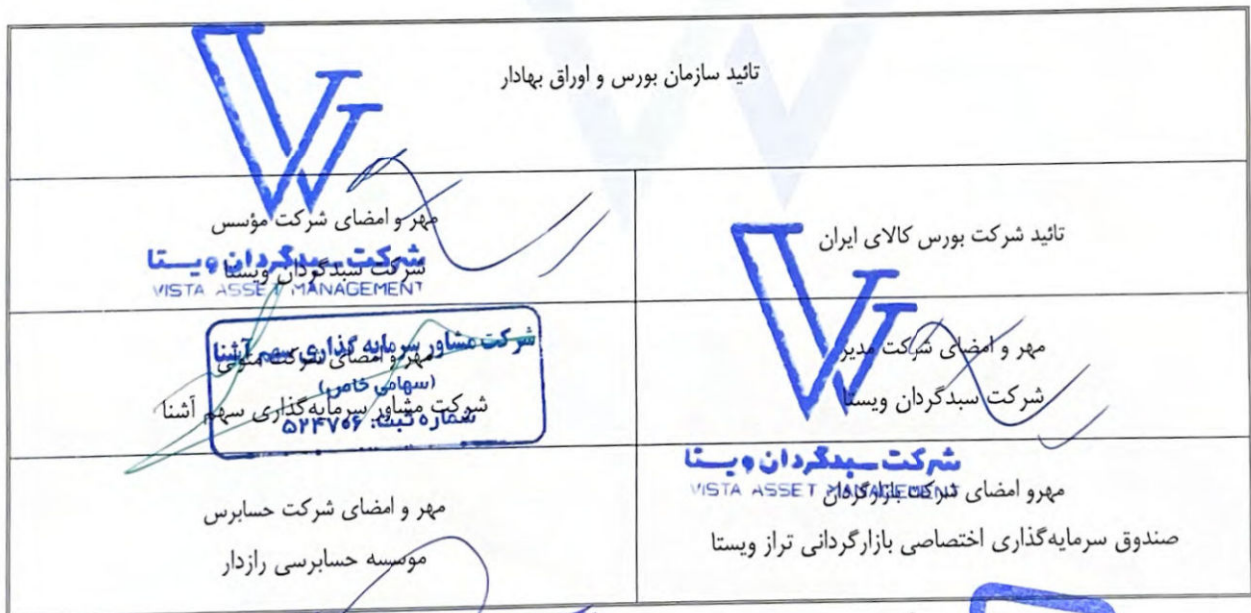 تائید سازمان بورس و اوراق بهادار
تائید شرکت بورس کالای ایران
مهر و امضای شرکت مؤسس
شرکت سبدگردان ویستا
شرکت سبدگردان ویستا
VISTA ASSET MANAGEMENT
مهر و امضای شرکت مدیر
شرکت سبدگردان ویستا
شرکت سبدگردان ویستا
VISTA ASSET MANAGEMENT
مهر و امضای شرکت متولی
شرکت مشاور سرمایه‌گذاری سهم آشنا
شرکت مشاور سرمایه گذاری سهم آشنا
(سهامی خاص)
شماره ثبت: ۵۲۴۷۰۶
مهرو امضای شرکت بازارگردان
صندوق سرمایه‌گذاری اختصاصی بازارگردانی تراز ویستا
مهر و امضای شرکت حسابرس
موسسه حسابرسی رازدار